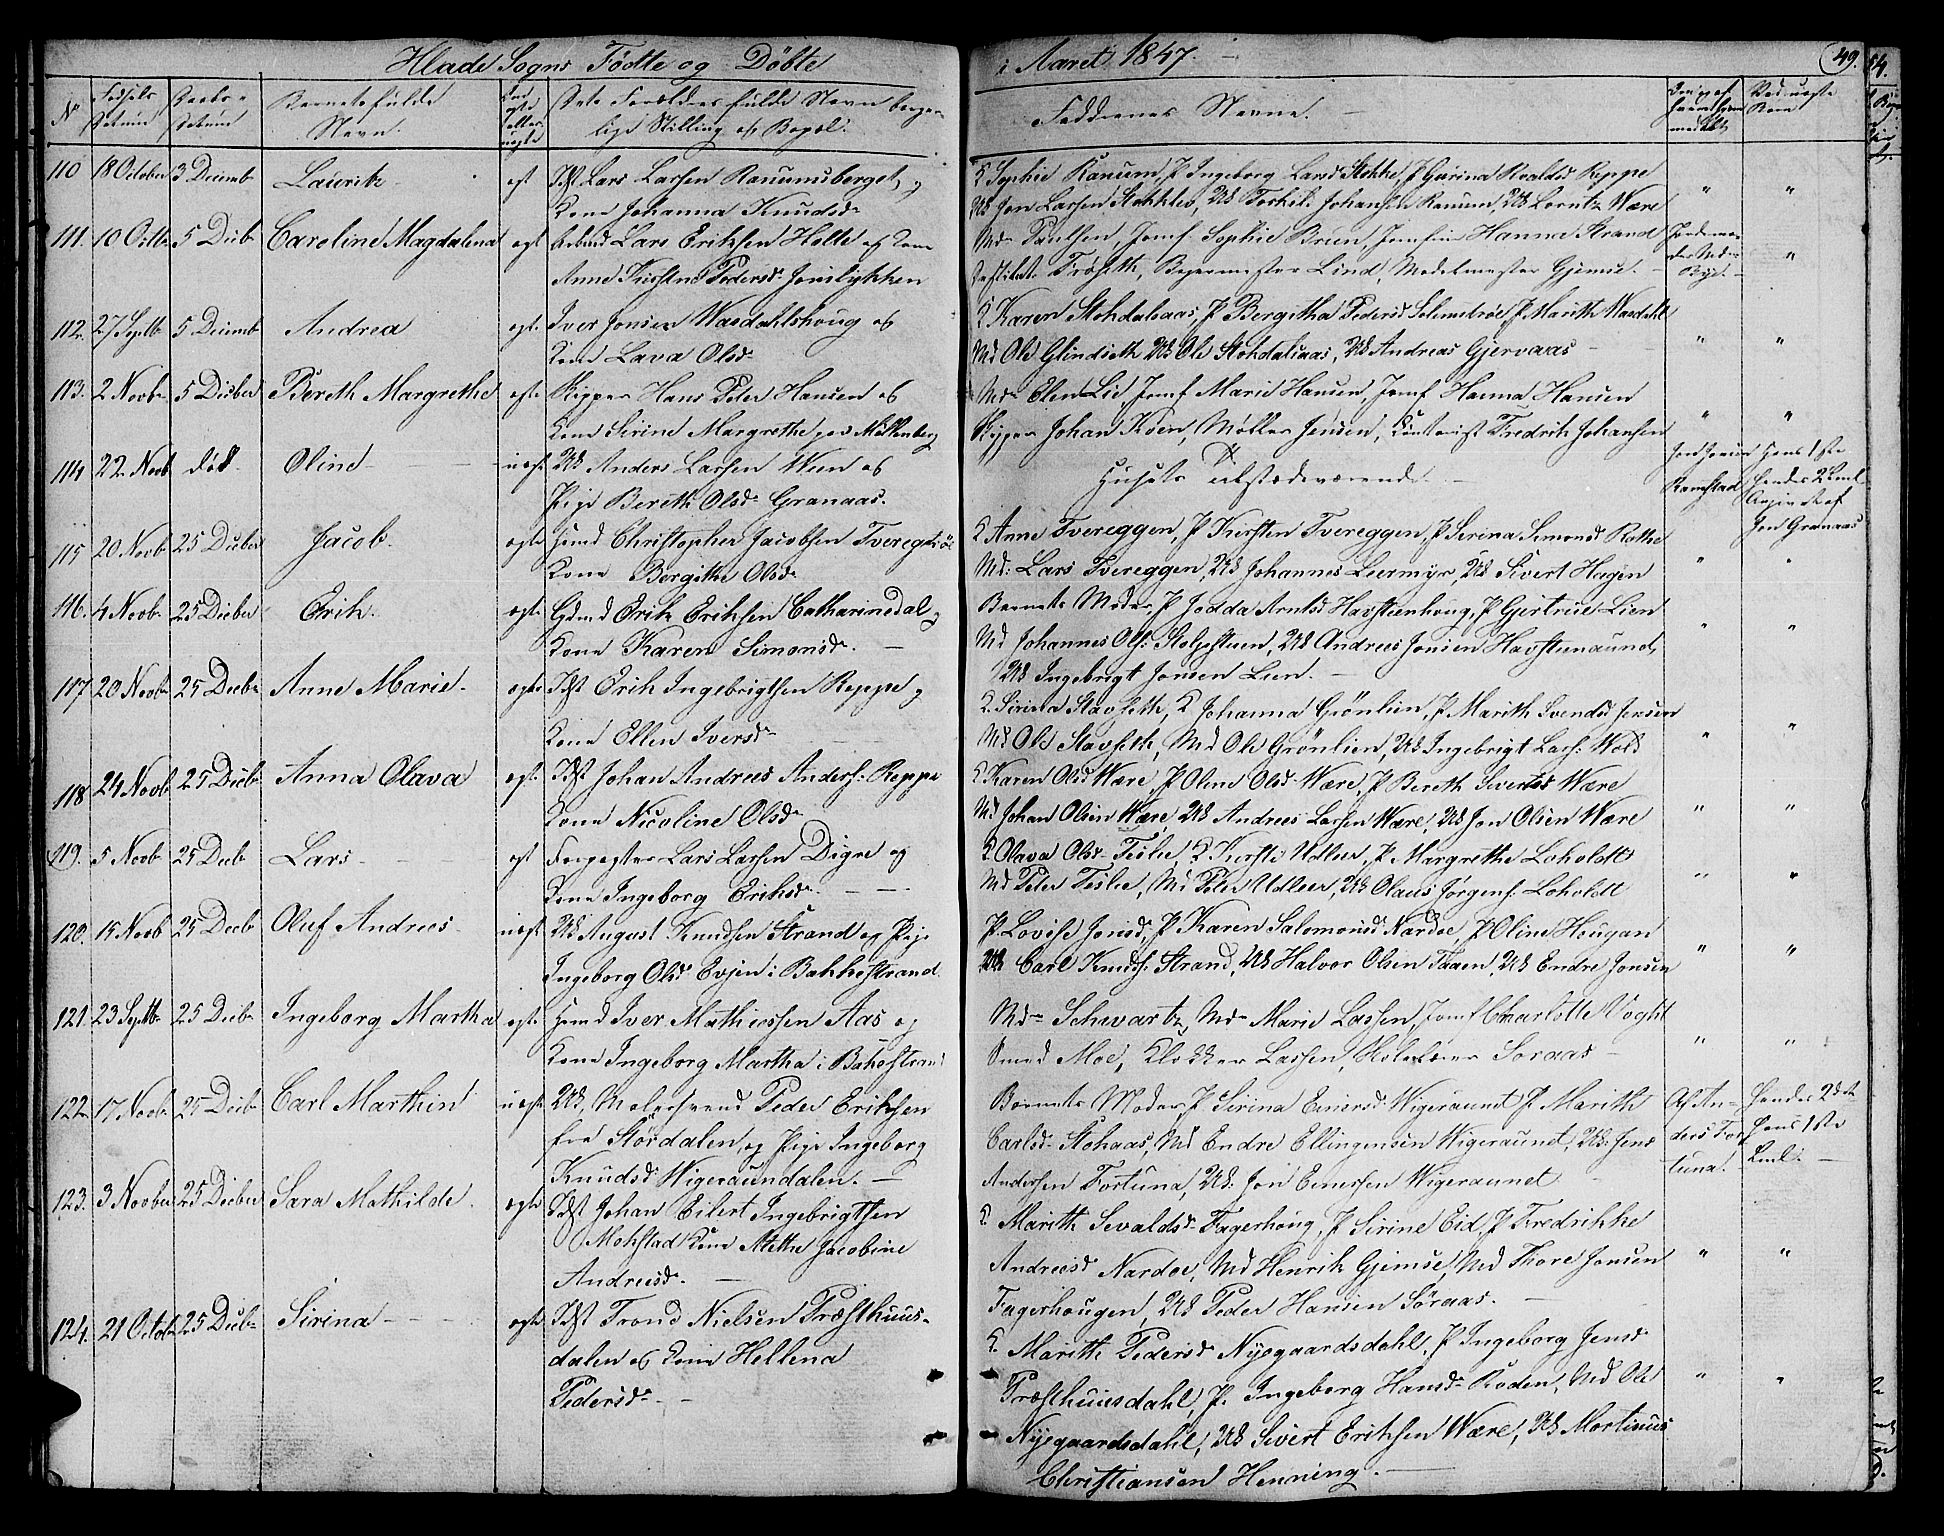 Hlade Sogns Födte og Döbte
i Aaret 1847.
49.
No
Fødsels Datum
Daabs Datum
Barnets fulde Navn.
Forældres fulde Navn
Stilling og Bopæl.
Faddernes Navne.
110 18 October 3 Decemb Laurits egt Idst Lars Larsen Ranumsberget, og
Kone Johanna Knudsdr
K Sophie Ranum, P Ingeborg Larsd Stokke, P Gurina Roaldsd Reppe
UK Jon Larsen Stokkleb, UK Torkil Johansen Ranum, UK Lorntz Wære
111. 10 Octb 5 Decb Caroline Magdalena egt Lars Eriksen Holte og Kone
Anne Kirstine Pedersdr Jonslykken
Md Paulsen, Jomf Sophie Bruun, Jomfru Hanna Strand
Fröseth, Bygmester Lind, Modelmester Gjemse.
112. 27 Septb 5 Decemb Andrea egte Iver Jonsen Wardahlshoug og
Kone Lava Olsdr
K Karen Stokdalaas, P Bergitha Pedersd Solemsbrøe, P Marith Wardahl
Md Ole Glindseth UK Ole Stohdalsaas, UK Andreas Gjervaas
113. 2 Novb 5 Decber Bereth Margrethe egte Skipper Hans Peter Hansen og
Kone Sirine Margrethe paa Møllenberg
Md Elen Lie, Jomf Marie Hansen, Jomf Hanna Hansen
Skipper Johan Koen, Møller Jensen, Contorist Fredrik Johansen
114 22 Novb död. Oline uægt UK Anders Larsen Ween og
Pige Bereth Olsdr Granaas.
Husets tilstædeværende.
Jon Jonsen
Ramstad
Hans 1ste
Hendes 2. Leml
Angivet af
Jon Granaas
115 20 Novb 25 Decber Jacob. egte Huusmd Christopher Jacobsen Tveregg
Kone Bergithe Olsdr
K Anne Tvereggen, P Kirsten Tvereggen, P Serina Simonsd Rothe
Md: Lars Tvereggen, UK Johannes Leermyr, UK Sivert Hagen
116. 4 Novb 25 Decber Erik. egte Gdmd Erik Eriksen Catharinedal og
Kone Karen Simonsdr.
Barnets Moder, P Jodda Arntsd Havsteenhoug, P Gjertrue Lien
Md Johannes Ols: Stolpestuen, UK Andreas Jonsen Havsteinaunet,
UK Ingebrigt Jonsen Lien.
117 20 Novb 25 Decbr Anne Marie. egte Idst Erik Ingebrigtsen Reppe og
Kone Ellen Iversdr
K. Sirina Stavseth, K Johanna Grönlien, P Marith Svendsd Jensen
Md Ole Stavseth, Md Ole Grönlien, UK Ingebrigt Lars: Wold
118 24 Novb 25 Decb Anna Olava egt Idst Johan Andreas Anders: Reppe
Kone Nicoline Olsdr
K Karen Olsd Wære, P Oline Olsd Wære, P Bereth Siverts Wære
Md Johan Olsen Wære UK Andreas Larsen Wære, UK Jon Olsen Wære
119. 5 Novb 25 Decb Lars egt Forpagter Lars Larsen Digre og
Kone Ingeborg Eriksdr
K Olava Olsd Teslie, K Kirsti Udleer, P Margrethe Loholdt
Md Peter Teslie, Md Peter Udleer, UK Olaus Jørgens: Loholdt
120. 15 Novb 25 Decb Oluf Andreas uægt UK August Knudsen Strand og Pige
Ingeborg Olsd Evjen i Bakkestrand
P. Lovise Jonsd, P Karen Salomonsd Nardoe, P Oline Hougan
UK Carl Knuds: Strand, UK Halvor Olsen Taaen, UK Endre Jonsen
121. 23 Septb 25 Decb Ingeborg Martha egte Huusmd Iver Mathiassen Aas og
Kone Ingeborg Martha i Bakkestrand
Mdm Schwartz, Mdm Marie Lassen, Jomf Charlotte Voght
Smed Moe, Klokker Lassen, Skolelærer Soraas
122. 17 Novb 25 Decb Carl Marthin uægt UK, Malersvend Peder Eriksen
fra Stördalen, og Pige Ingeborg
Knudsd Wigeraundalen.
Barnets Moder, P Sirina Einersd Wigeraunet P Marith
Carlsd Stokaas, Md Endre Ellingensen Wigeraunet, UK: Jens
Andersen Fortuna, UK: Jon Einersen Wigeraunet
Af Anders Fortuna.
Hendes 2det
Hans 1ste
Leml.
123. 3 Novber 25 Decber Sara Mathilde. egte Idst Johan Eilert Ingebrigtsen
Mohstad Kone Mette Jacobine
Andreasdr.
K. Marith Sevaldsd Fagerhoug, P Sirine Eid, P Fredrikke
Andreasd Nardoe, Md Henrik Gjemse, Md Thore Jonsen
Fagerhougen, UK Peder Hansen Söraas.
124. 21 Octob 25 Decb Sirina egte Idst Trond Nielsen Præsthuus-
dalen og Kone Hellena
Pedersdr
K. Marith Pedersd Nygaardsdahl, P Ingeborg Jensd
Præsthuusdahl, P. Ingeborg Hansd Roden, Md Ole
Nygaardsdahl, UK Sivert Eriksen Wære, UK Martinus
Christiansen Henning.